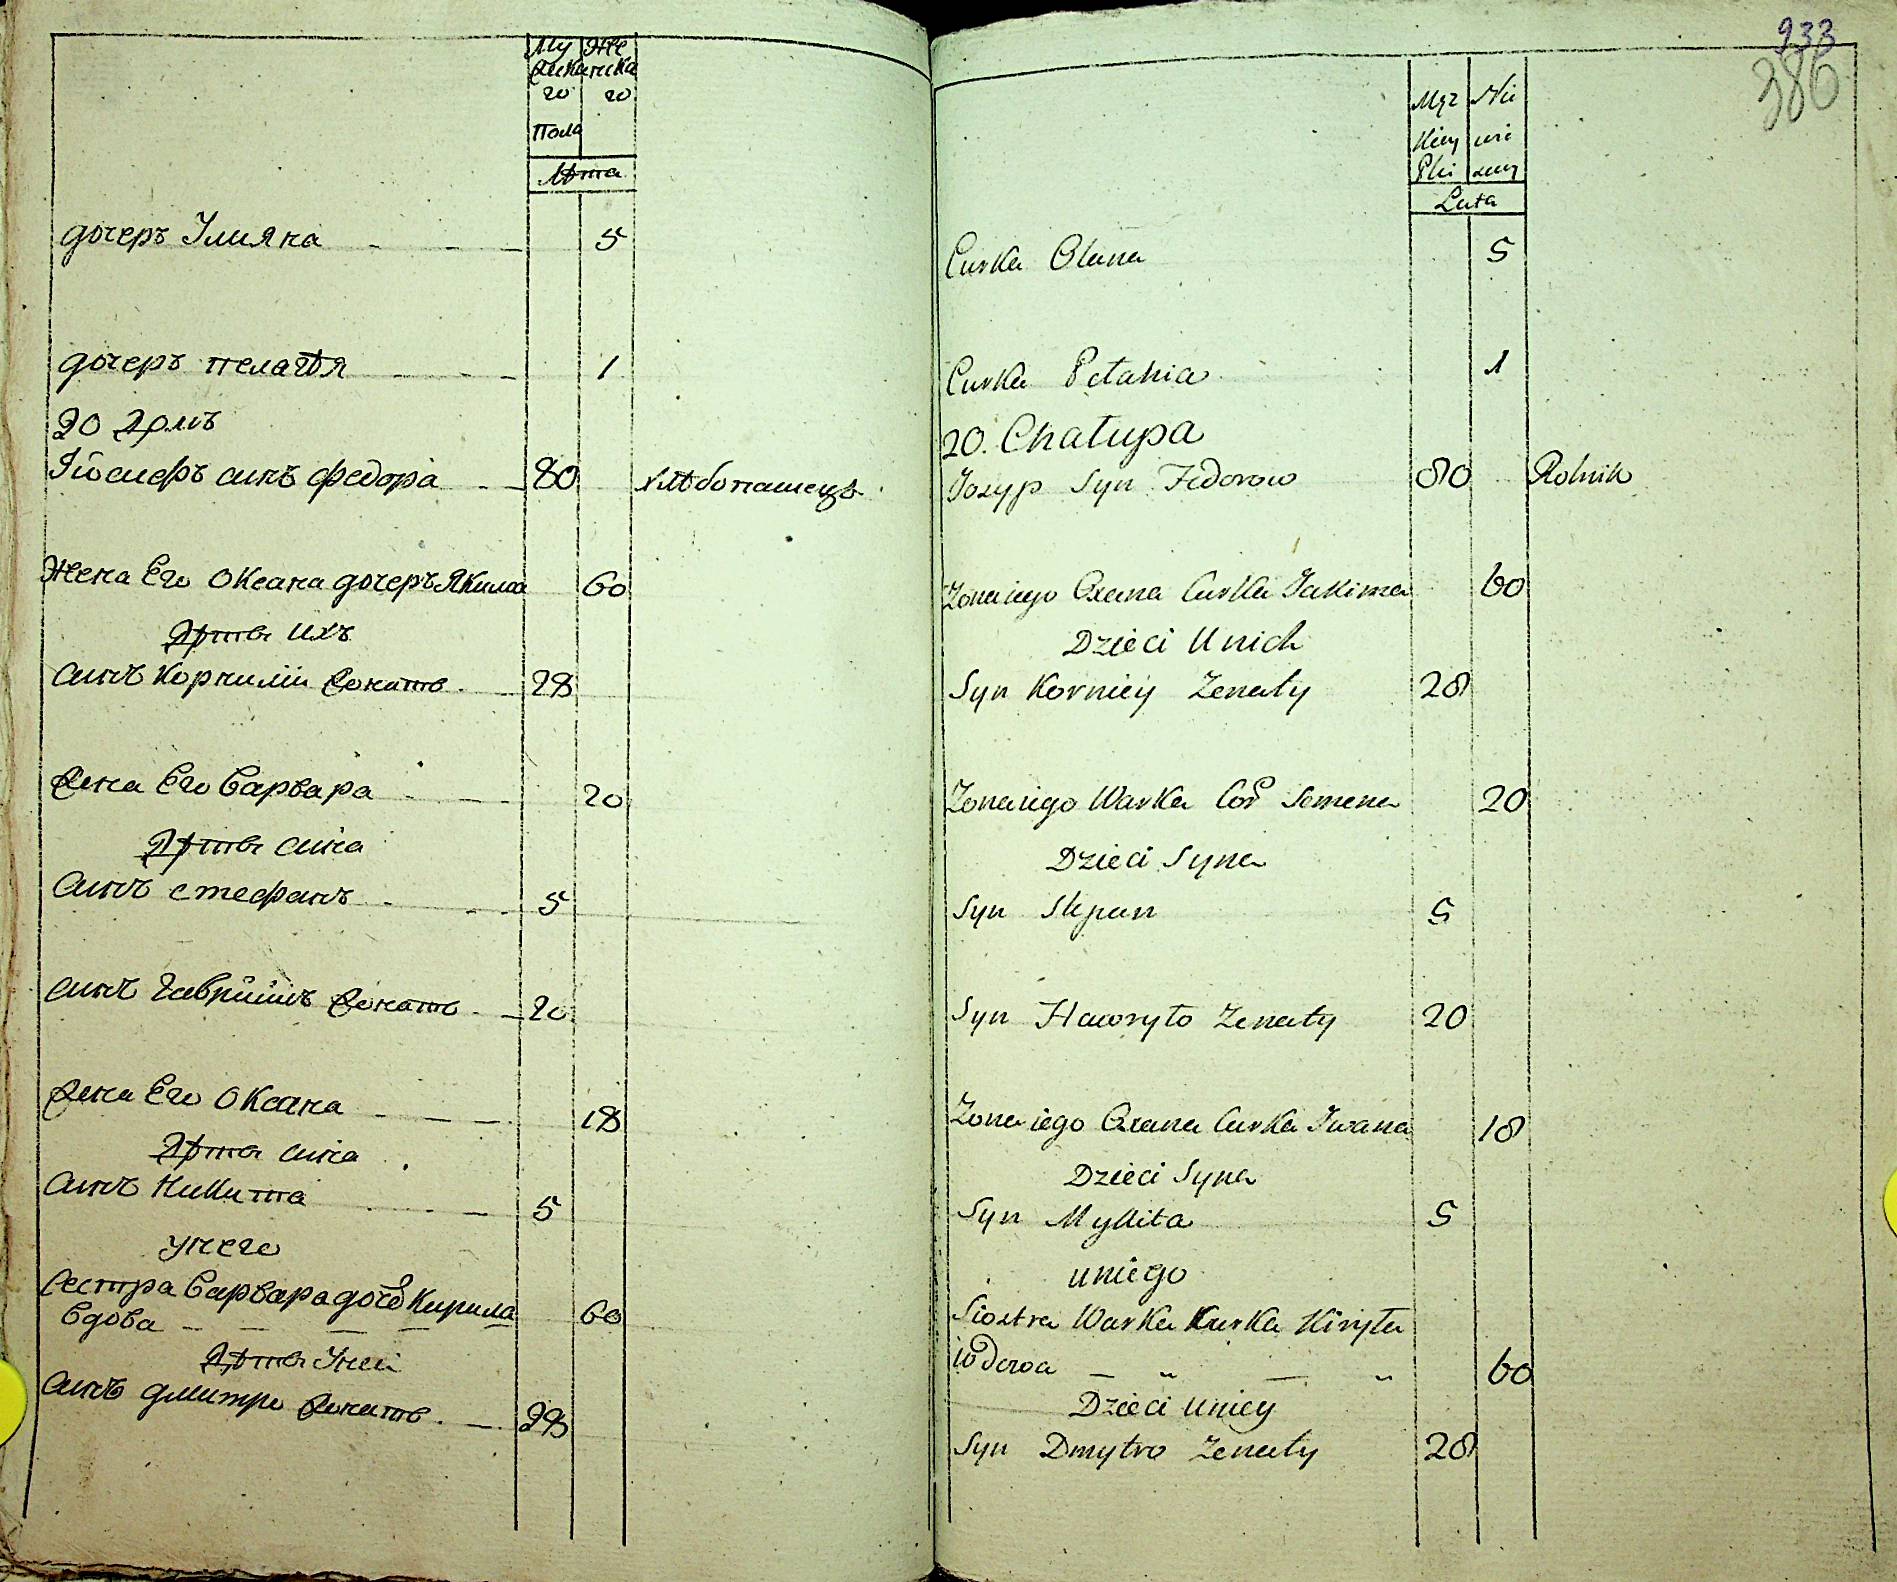 Му Же
жска нска
го го
Пола
Лѣта
дочеръ Улияна 5
дочеръ пелагѣя 1
20 домъ
Иосифъ синъ федора 80 хлѣбопашецъ
Жена Его Оксана дочеръ Якима 60
Дѣти ихъ
синъ корнилiй женатъ 28
жена Его Варвара 20
Дѣти сина
синъ стефанъ 5
синъ гавриилъ женатъ 20
жена Его Оксана 18
Дѣти сина
синъ Никита 5
у него
сестра Варвара доч Кирила
вдова 60
Дѣти у ней
синъ дмитро женатъ 28
933
386
Męz Nie
kiey wie
Płci
Lata
Curka Olana 5
Curka Petahia 1
20. Chałupa
Jozyp Syn Fedorow 80 Rolnik
Zona iego Oxana Curka Jakima 60
Dzieci U nich
Syn Korniey Zenaty 28
Zona iego Warka Cor Semena 20
Dzieci Syna
Syn Stepan 5
Syn Hawryło Zenaty 20
Zona iego Oxana Curka Iwana 18
Dzieci Syna
Syn Mykita 5
u niego
Siostra Warka Curka Kiryła
Wdowa 60
Dzieci u niey
Syn Dmytro Zenaty 28